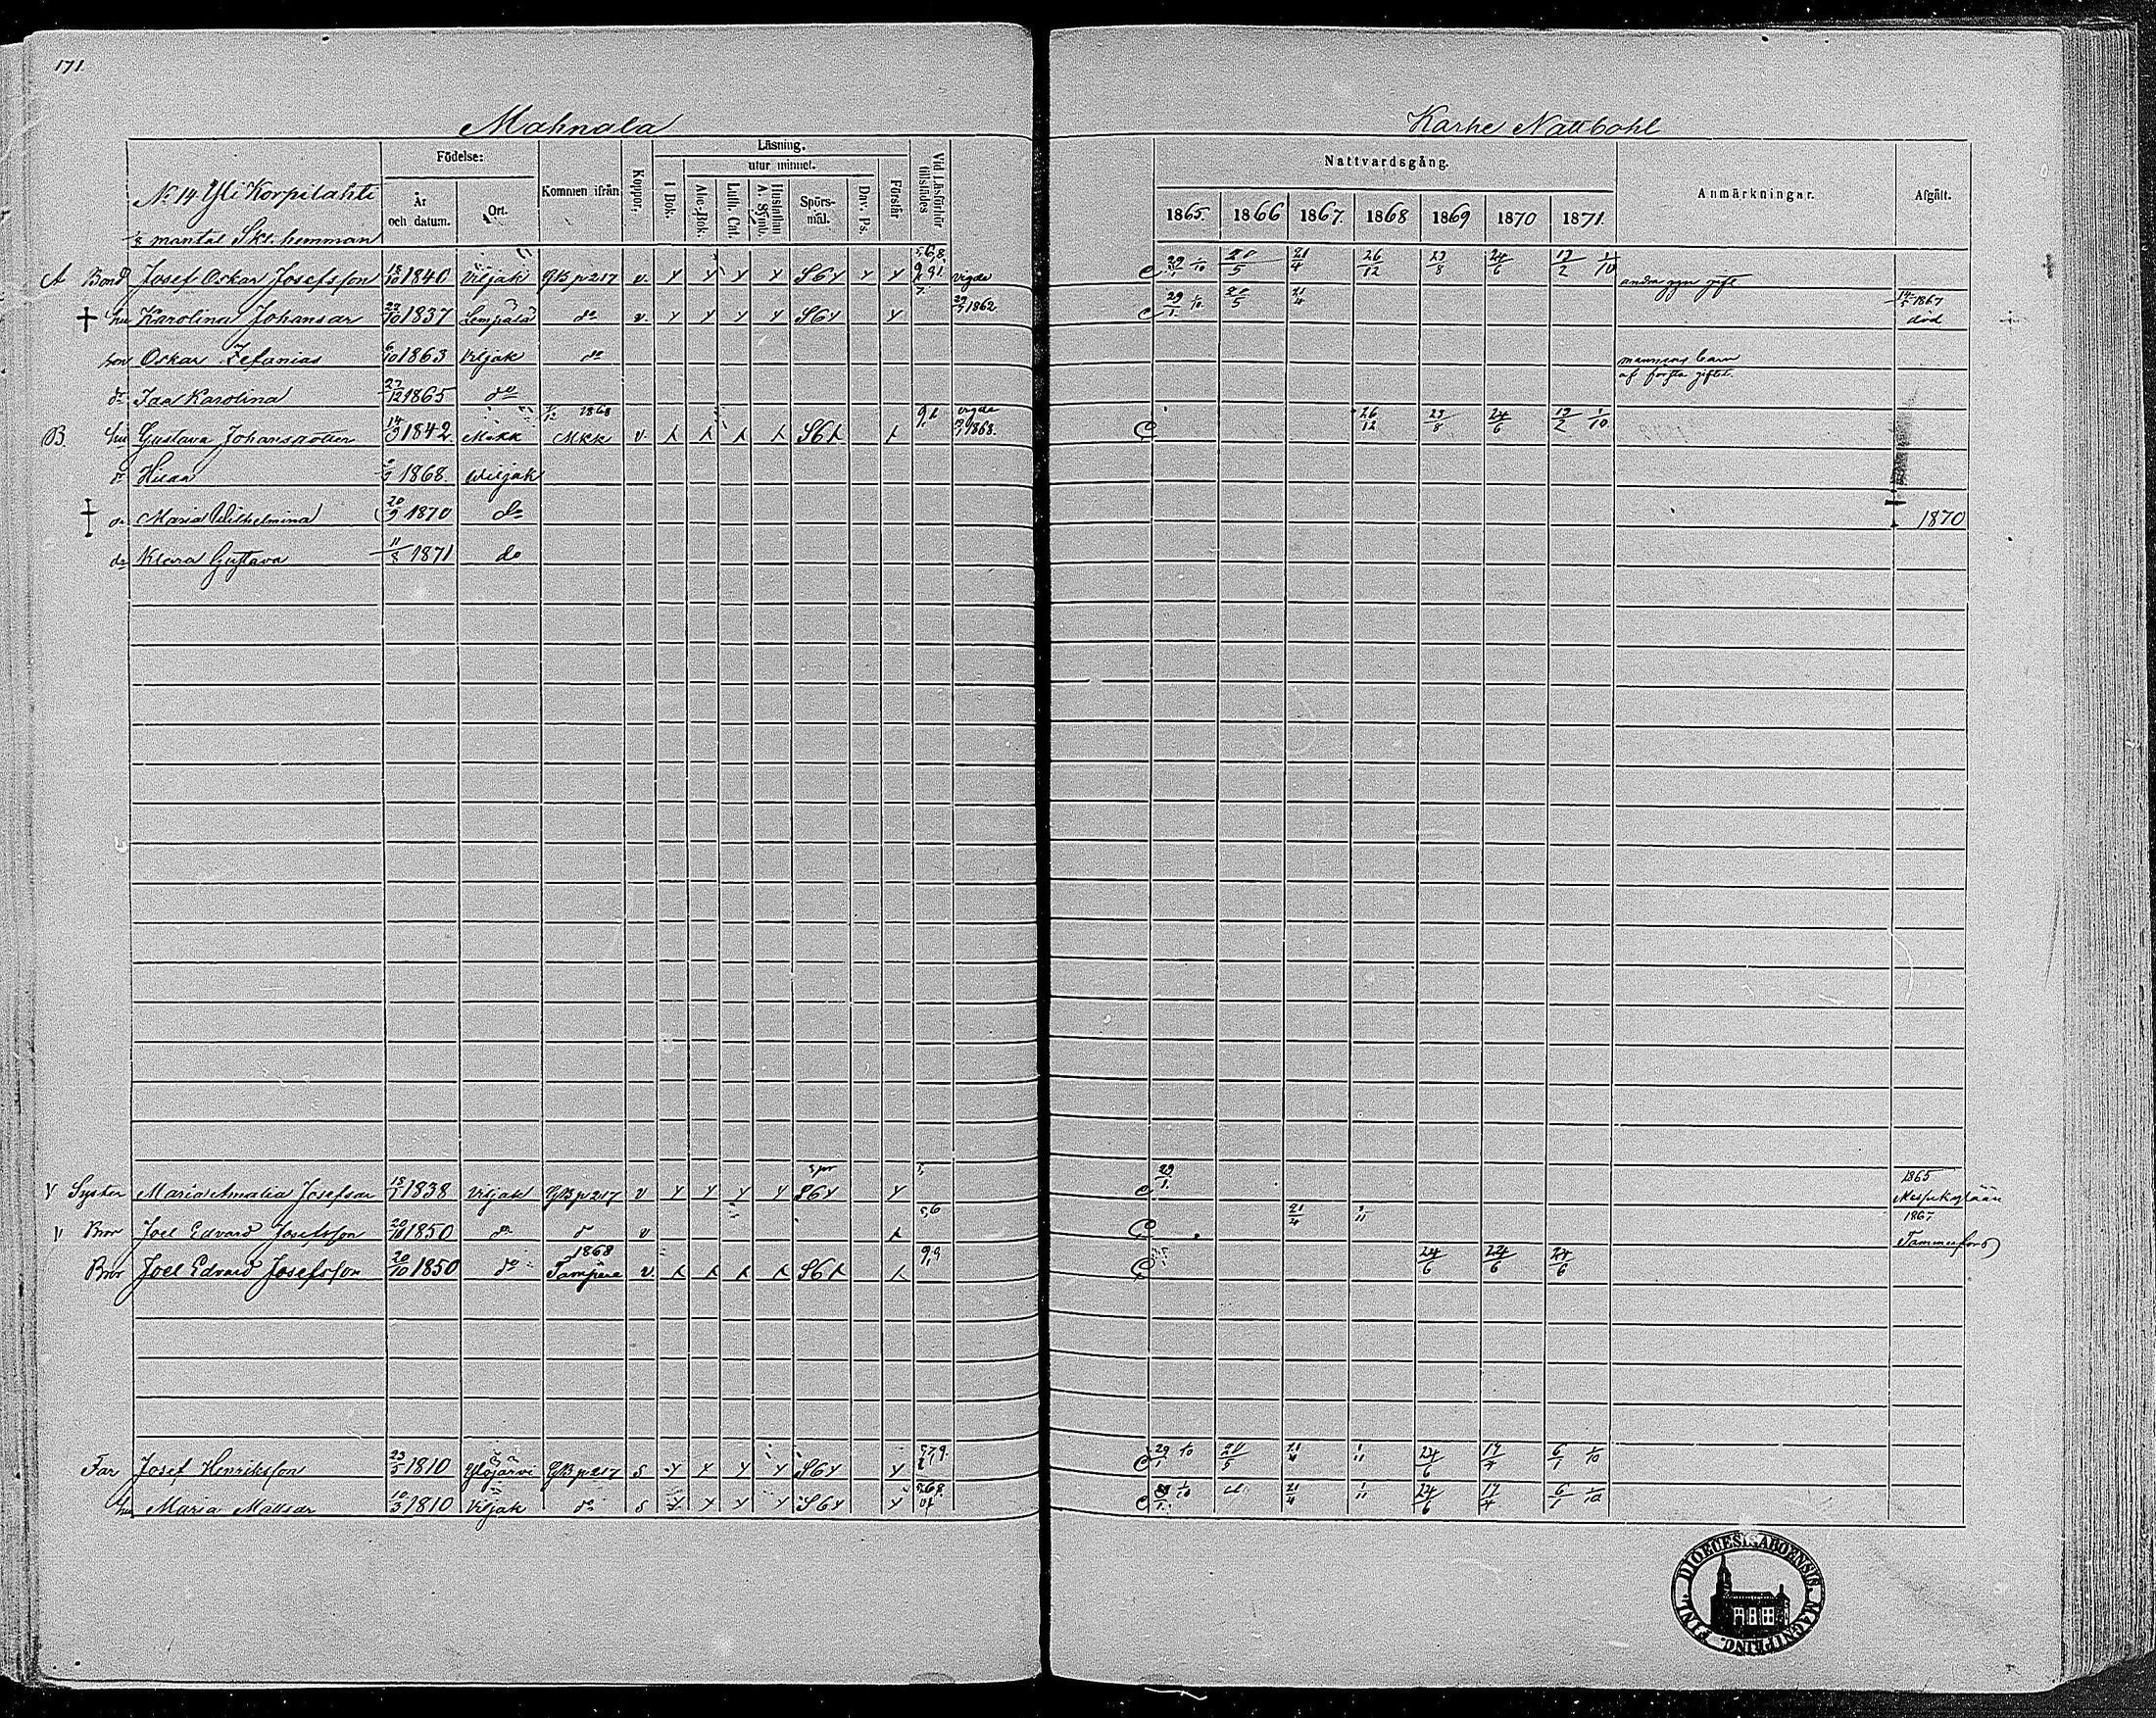 171.
Mahnala
Karhe Nattbohl
Födelse:
Läsning.
utur minnet.
Nattvardsgång.
No 14 Yli Korpilahti
År och datum.
Ort.
Kommen ifrån
Koppor.
I Bok.
Abc-Bok.
Luth. Cat.
Hustaflan A. Symb.
Spörsmål.
Dav. Ps.
Förstår
Vid Läsförhör tillstädes
1865. 1866 1867. 1868 1869 1870 1871.
Anmärkningar.
Afgått.
mantal Skt. hemman
A Bond Josef Oskar Josefsson 1840 Viljak GB p 217 v. Y Y Y Y S6Y Y Y Vigde 29/1 1/10 20/5 21/4 26/12 23/8 24/6 12/2 1/10 andra ggn gift
hu Karolina Johansdr 27/10 1837 Lempälä do v. Y Y Y Y S6Y Y 1862 29/1 1/10 20/5 21/4 1867 död
son Oskar Zefanias 6/10 1863 Viljak do mannens barn af första giftet.
dr Ida Karolina 27/12 1865 do
B. hu Gustava Johansdotter 14/9 1842 Mkk 1868 Mkk v. S6 vigde 1868. 26/12 23/8 24/6 12/2 1/10
dr Hilda 1868. Viljak
dr Maria Wilhelmina 20/9 1870 do 1870
dr Klara Gustava 11/8 1871 do
V Syster Maria Amalia Josefsdr 1838 Viljak GB p 217 v Y Y Y Y S6Y Y 29/1. 1865
V Bror Joel Edvard Josefsson 20/10 1850 do d v 5,6 21/4 1/11 1867 Tammerfors
Bror Joel Edvard Josefsson 20/10 1850 do 1868 Tampere v. S6 24/6 24/6 24/6
Far Josef Henriksson 1810 Ylöjärvi GB p 217 s Y Y Y Y S6Y Y 29/1 1/10 20/5 21/4 1/11 24/6 17/4 6/1 1/10
hu Maria Mattsdr 10/3 1810 Viljak do s Y Y Y Y S6Y Y 1/10 21/4 1/11 24/6 17/4 6/1 1/10
DIOECESIS ABOENSIS MAGNI PRINC. FINL.